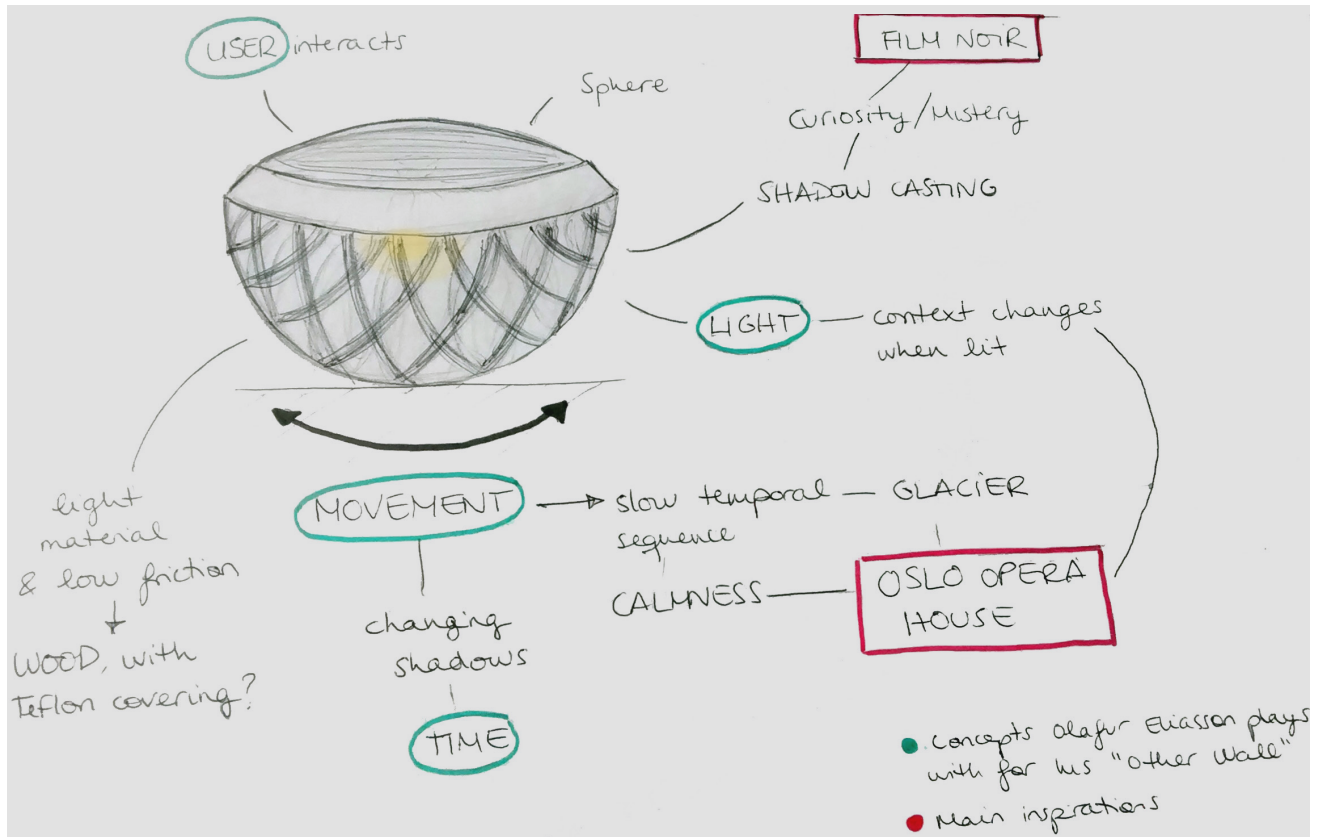 USER interacts
Sphere
FILM NOIR
Curiosity/Mistery
SHADOW CASTING
LIGHT
context changes
when lit
MOVEMENT
slow temporal
sequence
GLACIER
CALMNESS
OSLO OPERA
HOUSE
light
material
& low friction
WOOD, with
Teflon covering?
changing
shadows
TIME
Concepts Olafur Eliasson plays
with for his "Other Wall"
Main inspirations